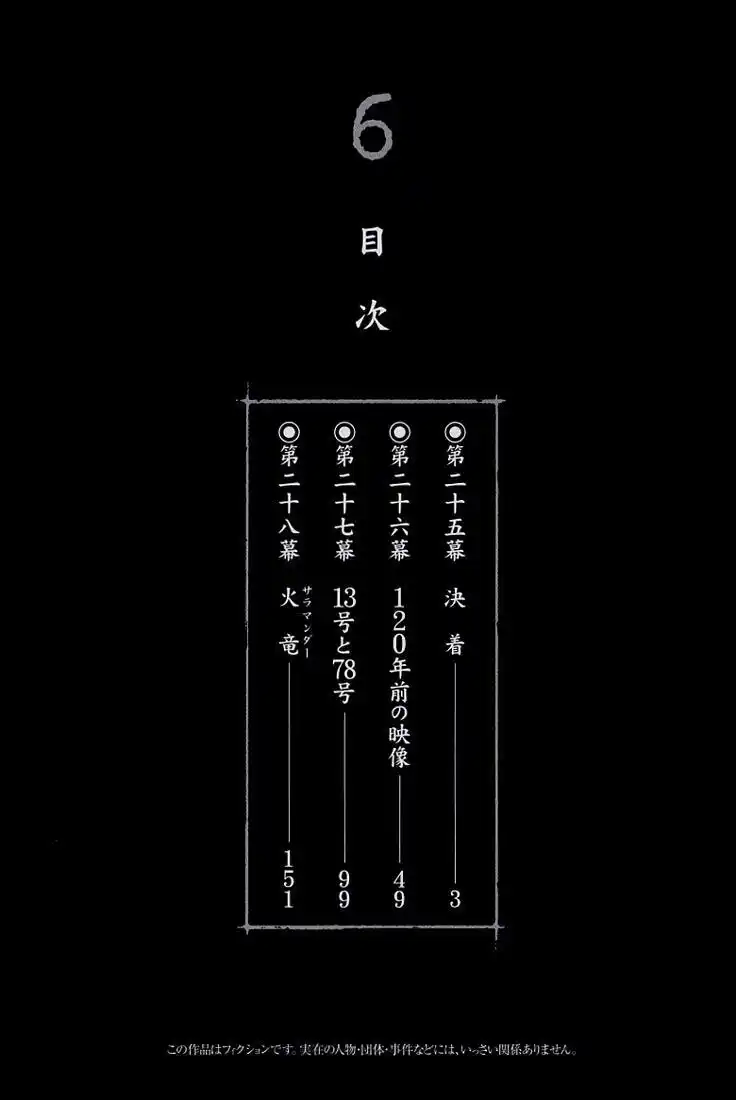 6
目次
◉第二十五幕 決着 3
◉第二十六幕 120年前の映像 49
◉第二十七幕 13号と78号 99
◉第二十八幕 火竜 151
サラマンダー
この作品はフィクションです。実在の人物・団体・事件などには、いっさい関係ありません。